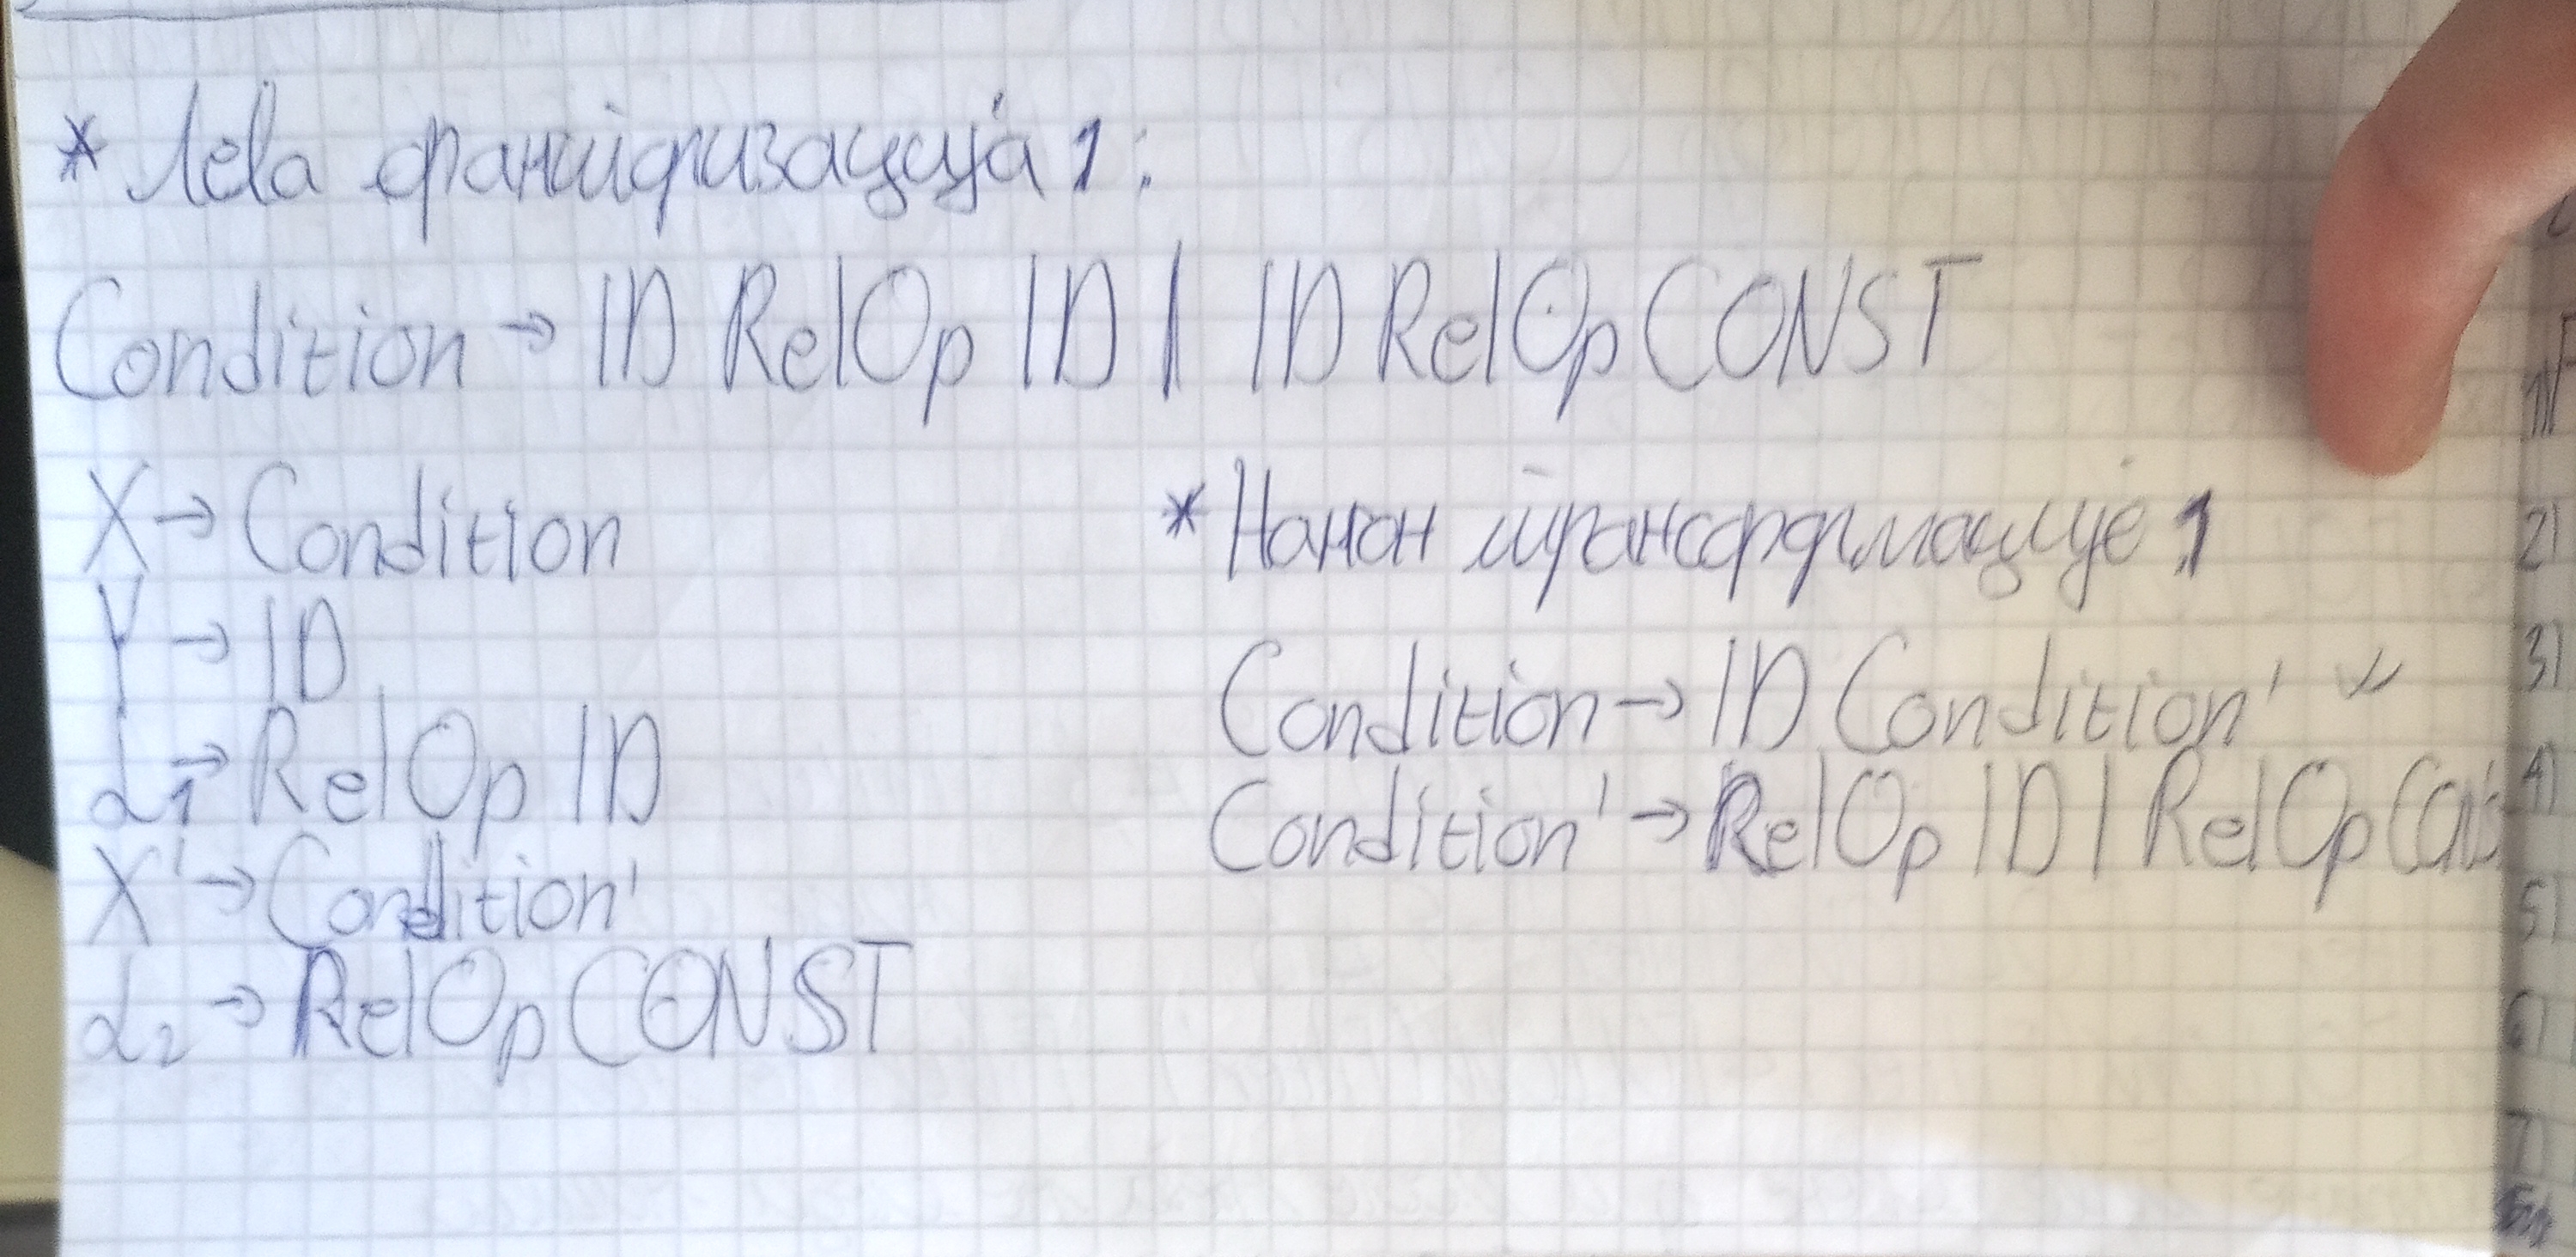 * Лева факторизација 1:
Condition → ID RelOp ID | ID RelOp CONST
X → Condition
Y → ID
α1 → RelOp ID
X' → Condition'
α2 → RelOp CONST
* Након трансформације 1
Condition → ID Condition'
Condition' → RelOp ID | RelOp
2)
3)
4)
5)
6)
7)